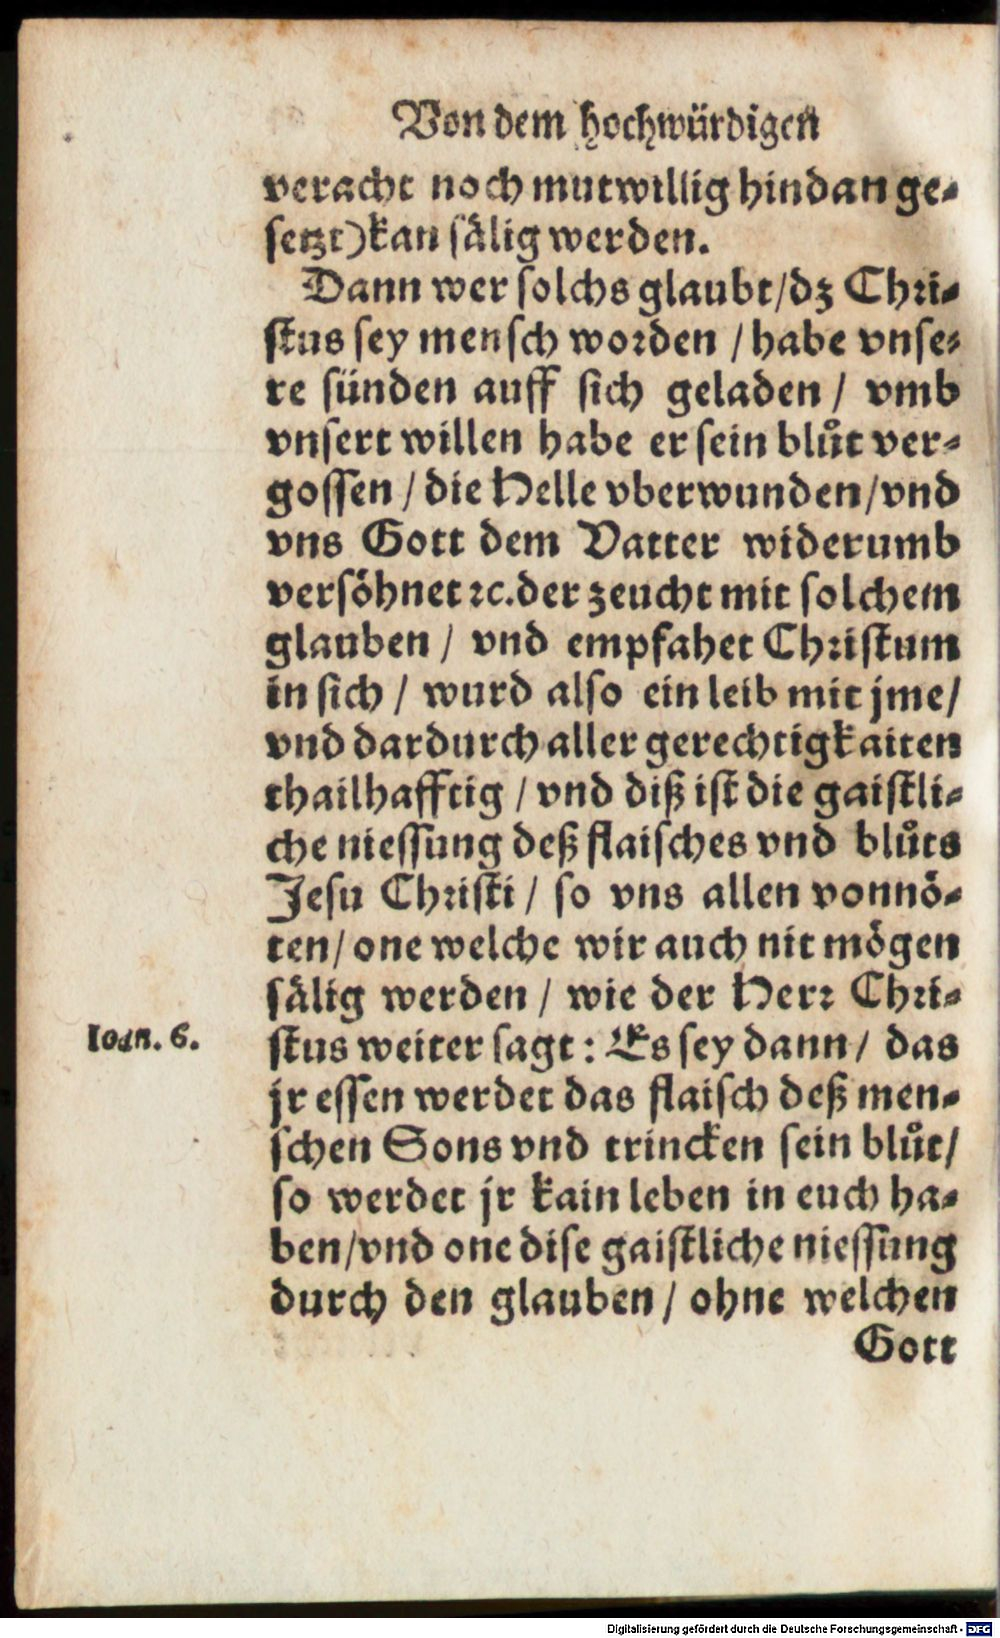 Von dem hochwürdigen
veracht noch mutwillig hindan ge-
setzt) kan sälig werden.
Dann wer solchs glaubt / dz Chri-
stus sey mensch worden / habe vnse-
re sünden auff sich geladen / vmb
vnsert willen habe er sein blůt ver-
gossen / die Helle vberwunden / vnd
vns Gott dem Vatter widerumb
versöhnet ꝛc. der zeucht mit solchem
glauben / vnd empfahet Christum
in sich / wurd also ein leib mit jme /
vnd dardurch aller gerechtigkaiten
thailhafftig / vnd diß ist die gaistli-
che niessung deß flaisches vnd blůts
Jesu Christi / so vns allen vonnö-
ten / one welche wir auch nit mögen
sälig werden / wie der Herr Chri-
Ioan. 6.
stus weiter sagt: Es sey dann / das
jr essen werdet das flaisch deß men-
schen Sons vnd trincken sein blůt /
so werdet jr kain leben in euch ha-
ben / vnd one dise gaistliche niessung
durch den glauben / ohne welchen
Gott
Digitalisierung gefördert durch die Deutsche Forschungsgemeinschaft - DFG